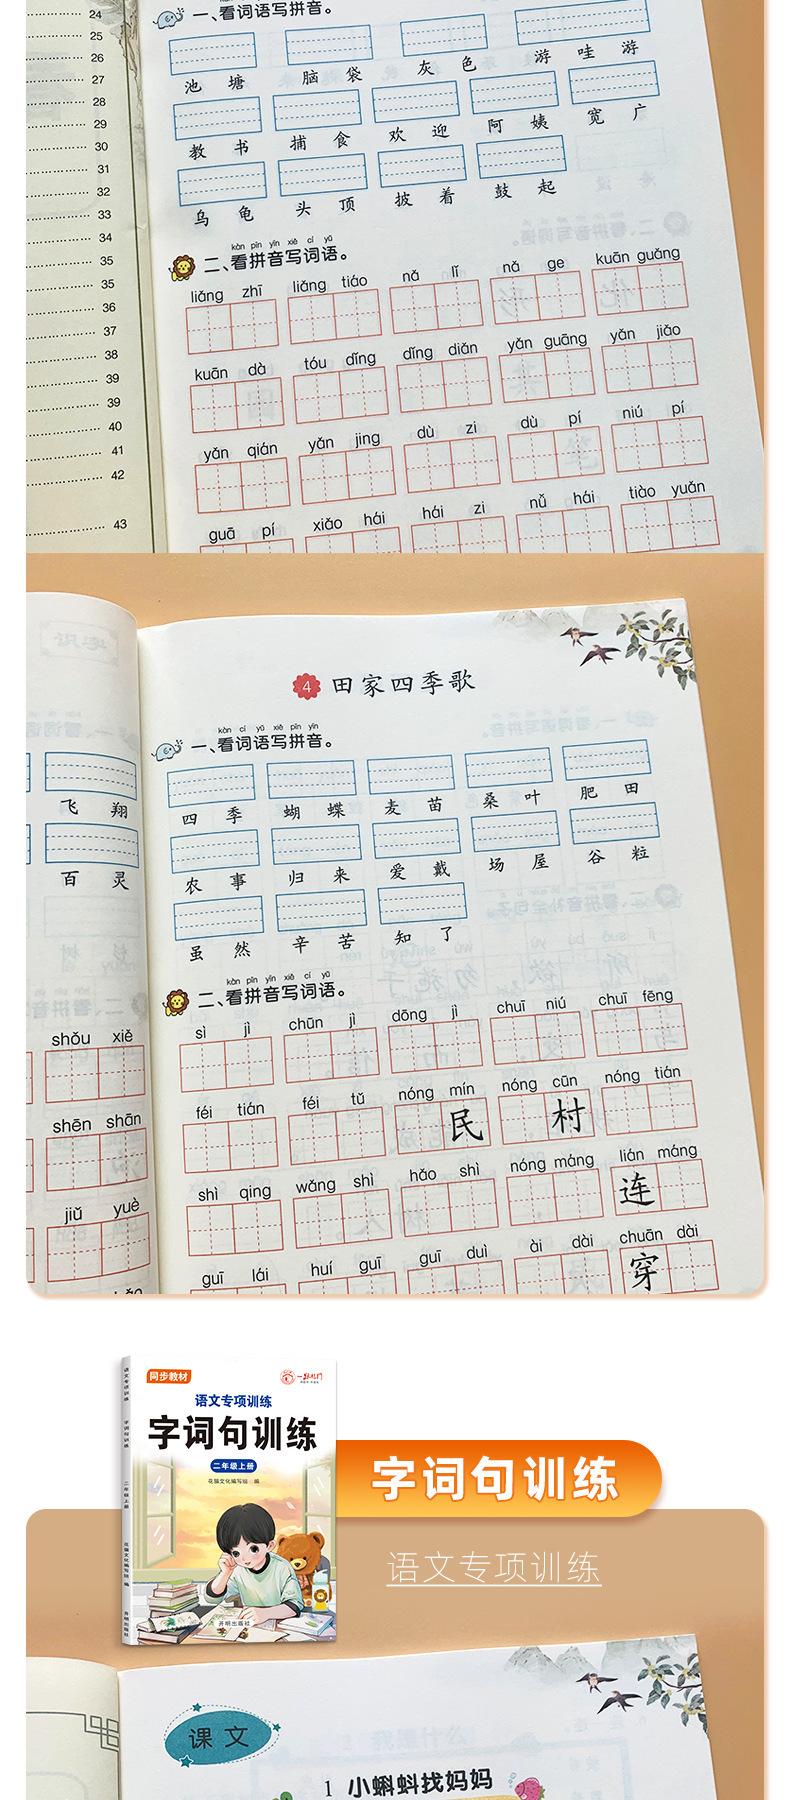 24
25
26
27
28
29
30
31
32
33
34
35
35
36
37
38
39
39
40
41
42
43
一、看词语写拼音。
池塘 脑袋 灰色 游哇游
教书 捕食 欢迎 阿姨 宽广
乌龟 头顶 披着 鼓起
kàn pīn yīn xiě cí yǔ
二、看拼音写词语。
liǎng zhī liǎng tiáo nǎ lǐ nǎ ge kuān guǎng
kuān dà tóu dǐng dǐng diǎn yǎn guāng yǎn jiǎo
yǎn qián yǎn jing dù zi dù pí niú pí
guā pí xiǎo hái hái zi nǚ hái tiào yuǎn
飞翔
百灵
shǒu xiě
shēn shān
jiǔ yuè
4 田家四季歌
kàn cí yǔ xiě pīn yīn
一、看词语写拼音。
四季 蝴蝶 麦苗 桑叶 肥田
农事 归来 爱戴 场屋 谷粒
虽然 辛苦 知了
kàn pīn yīn xiě cí yǔ
二、看拼音写词语。
sì jì chūn jì dōng jì chuī niú chuī fēng
féi tián féi tǔ nóng mín nóng cūn nóng tián
民 村
shì qing wǎng shì hǎo shì nóng máng lián máng
连
guī lái huí guī guī duì ài dài chuān dài
穿
同步教材
一路龙门
语文专项训练
字词句训练
二年级上册
花猫文化编写组 编
开明出版社
语文专项训练
字词句训练
二年级上册
花猫文化编写组 编
开明出版社
字词句训练
语文专项训练
课文
1 小蝌蚪找妈妈